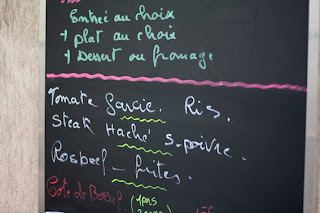 Entrée au choix
+ plat au choix
+ Dessert ou fromage
Tomate Farcie. Ris.
Steak Haché s. poivre.
Rosbeef - frites.
Cote de Boeuf (1pers